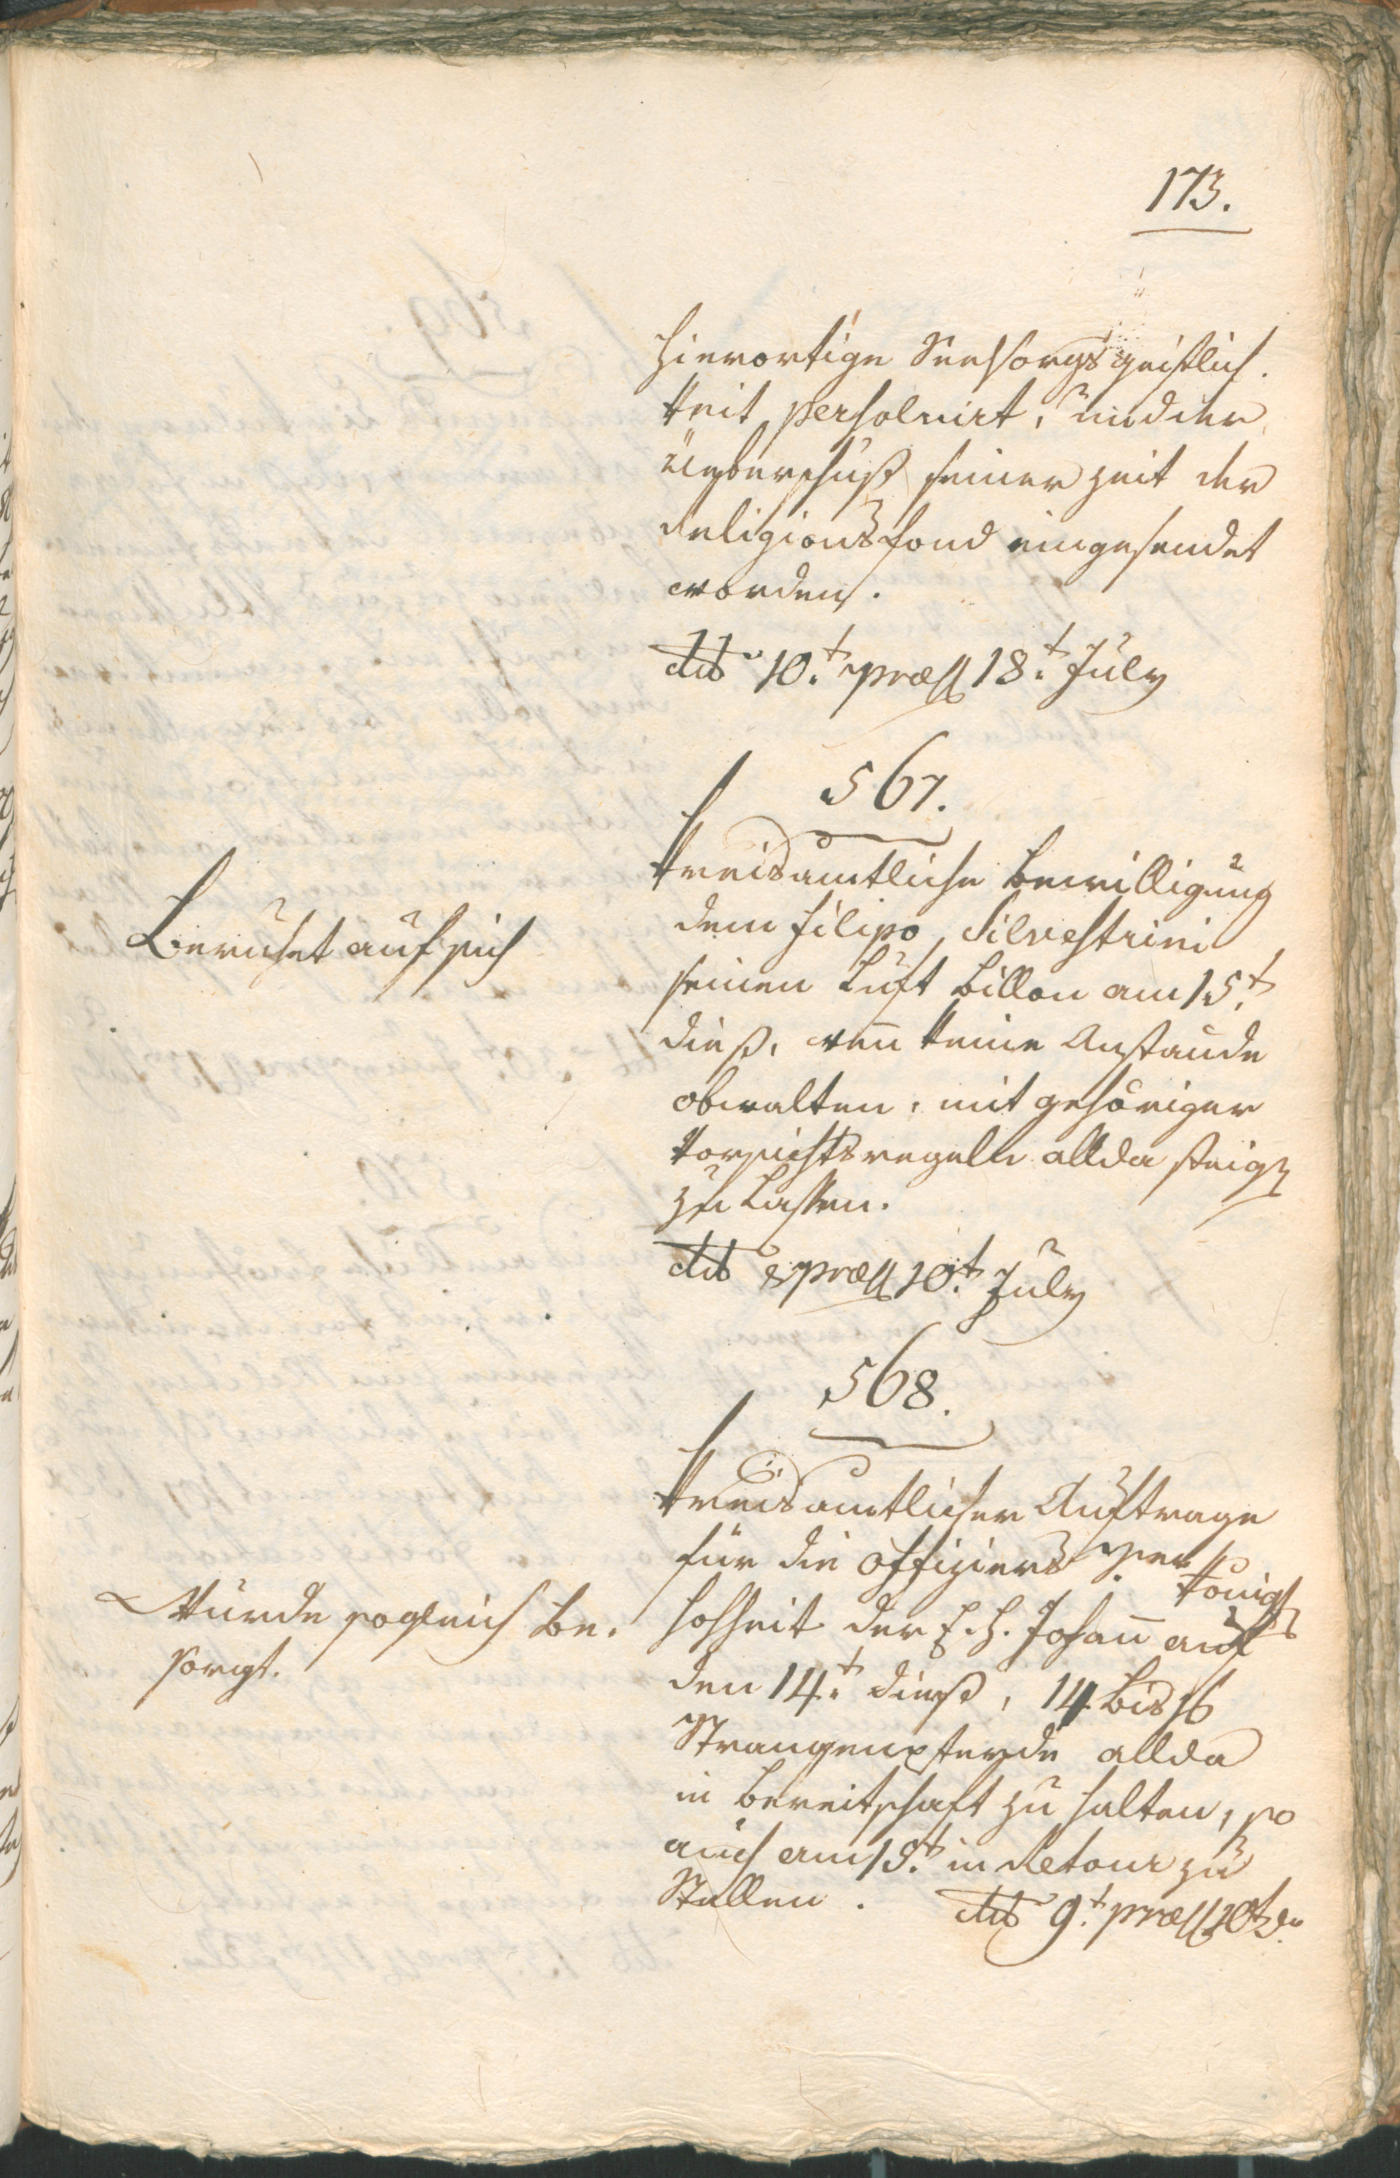 173.
hierortige Seelsorgsgeistlich.
keit persolvirt, und der
Ueberschuß seiner Zeit der
Religionsfond eingesendet
worden.
dto 10.t præs 18.t July
567.
Kreisamtliche Bewilligung
dem Filipo Silvestrini
seinen Luft Billon am 15.t
dieß, wenn keine Anstände
obwalten, mit gehöriger
Vorsichtsregeln allda steigen
zu Lassen.
dto & præs 10.t July
Beruhet auf sich
568.
Kreisamtlicher Auftrage
für die Offiziers Königl
Hohheit der E. H. Johann auf
den 14.t dieß, 14 bis 16
Strangenpferde allda
in Bereitschaft zu halten, so
auch am 15.t in Retour zu
Stellen. dto 9.t præs 10t do
Wurde sogleich be.
sorgt.